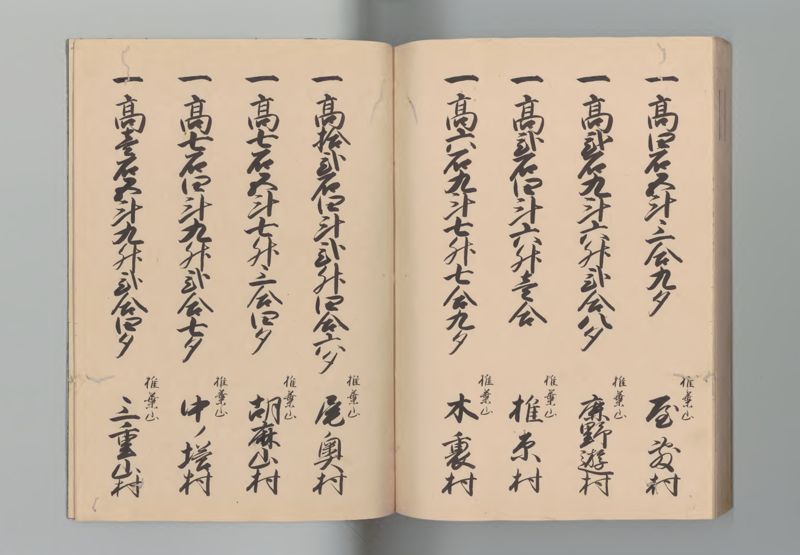 一髙四石五斗三合九夕 椎葉山 村
一髙弐石九斗六升弐合八夕 椎葉山 鹿野遊村
一髙弐石四斗六升壱合 椎葉山 椎原村
一髙六石九斗七升七合九夕 椎葉山 木裏村
一髙拾弐石四斗弐升四合六夕 椎葉山 尾奥村
一髙七石五斗七升三合四夕 椎葉山 胡麻山村
一髙七石四斗九升弐合七夕 椎葉山 中ノ塔村
一髙壱石五斗九升弐合四夕 椎葉山 三重山村